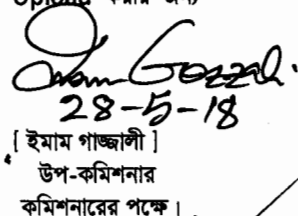 Imam Gazzali
28-5-18
[ ইমাম গাজ্জালী ]
উপ-কমিশনার
কমিশনারের পক্ষে।